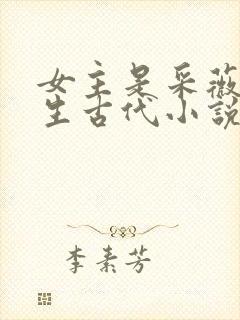 女主是采薇
生古代小說
李素芳